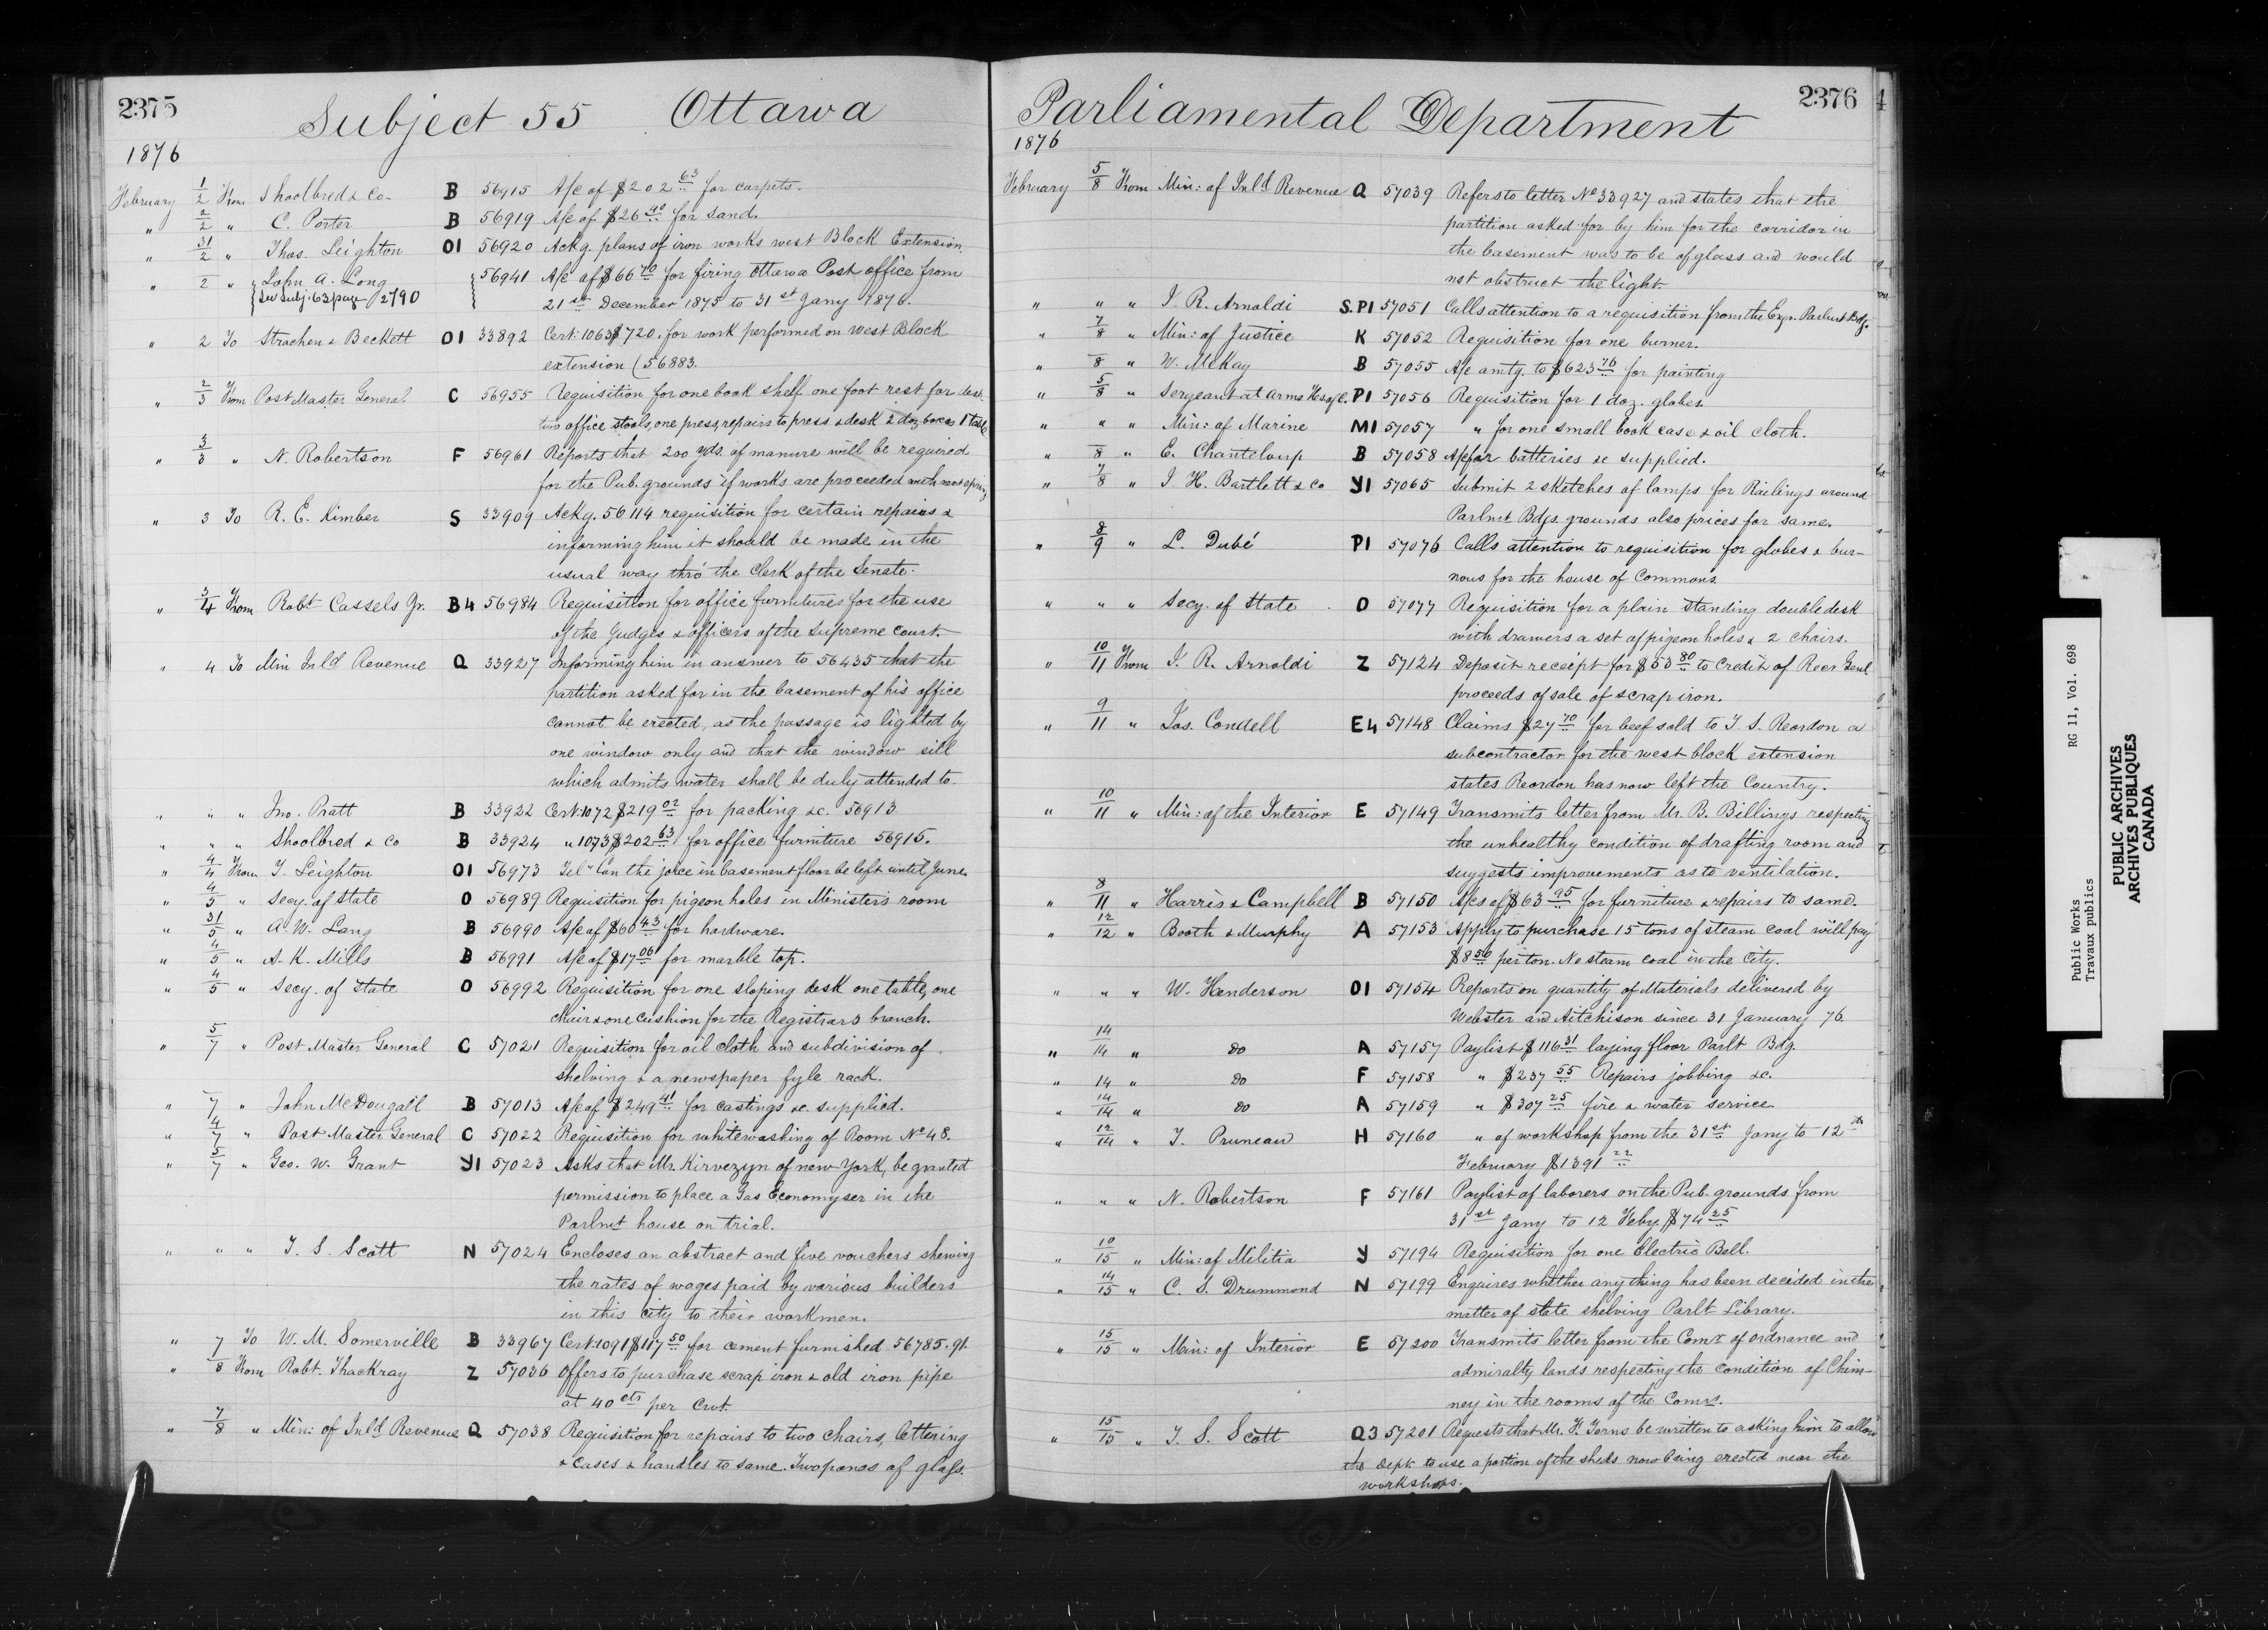 2375
Subject 55 Ottawa
1876
February 1/2 From Shoolbred & Co. B 56915 A/c of $202 63 for carpets.
" 2/2 " C. Porter B 56919 A/c of $26 40 for sand.
" 31/2 " Thos. Leighton O1 56920 Ackg. plans of iron works west Block Extension.
" 2 " John A. Long 56941 A/c of $66 70 for firing Ottawa Post office from
See Subj. 63 page 2790 21st December 1875 to 31st Jany 1876.
" 2 To Strachen & Beckett O1 33892 Cert. 1063 $720. for work performed on West Block
extension (56883.
" 2/3 From Post Master General C 56955 Requisition for one book shelf one foot rest for desk
two office stools, one press, repairs to press & desk 2 doz boxes 1 table
" 3/3 " N. Robertson F 56961 Reports that 200 yds. of manure will be required
for the Pub. grounds if works are proceeded with next spring
" 3 To R. E. Kimber S 33909 Ackg. 56114 requisition for certain repairs &
informing him it should be made in the
usual way thro' the Clerk of the Senate.
" 3/4 From Robt Cassels Jr. B4 56984 Requisition for office furnitures for the use
of the Judges & officers of the Supreme Court.
" 4 To Min Inld Revenue Q 33927 Informing him in answer to 56435 that the
partition asked for in the basement of his office
cannot be erected, as the passage is lighted by
one window only and that the window sill
which admits water shall be duly attended to.
" " " Jno. Pratt B 33932 Cert. 1072 $219 02 for packing &c. 56913.
" " " Shoolbred & Co B 33924 " 1073 $202 63 for office furniture 56915.
" 4/4 From T. Leighton O1 56973 Tel" Can the joice in basement floor be left until June.
" 4/5 " Secy. of State O 56989 Requisition for pigeon holes in Minister's room
" 31/5 " A. W. Lang B 56990 A/c of $60 43 for hardware.
" 4/5 " A. K. Mills B 56991 A/c of $17 00 for marble top.
" 4/5 " Secy. of State O 56992 Requisition for one sloping desk one table, one
chair & one cushion for the Registrars branch.
" 5/7 " Post Master General C 57021 Requisition for oil cloth and subdivision of
shelving & a newspaper fyle rack.
" 7 " John McDougall B 57013 A/c of $249 41 for castings &c. supplied.
" 4/7 " Post Master General C 57022 Requisition for whitewashing of Room No 48.
" 5/7 " Geo. W. Grant Y1 57023 Asks that Mr. Kirvezyn of new York, be granted
permission to place a Gas Economyser in the
Parlmt house on trial.
" " " T. S. Scott N 57024 Encloses an abstract and five vouchers shewing
the rates of wages paid by various builders
in this city to their workmen.
" 7 To W. M. Somerville B 33967 Cert. 1091 $117 50 for cement furnished 56785.91.
" 8 From Robt. Thackray Z 57036 Offers to purchase scrap iron & old iron pipe
at 40 cts per Cwt.
" 7/8 " Min: of Inld Revenue Q 57038 Requisition for repairs to two chairs, lettering
& cases & handles to same. Two panes of glass.
2376
Parliamental Department
1876
February 5/8 From Min: of Inld Revenue Q 57039 Refers to letter No 33927 and states that the
partition asked for by him for the corridor in
the basement was to be of glass and would
not obstruct the light
" " " I. R. Arnoldi S.P1 57051 Calls attention to a requisition from the Exgr. Parlmt Bdg.
" 7/8 " Min: of Justice K 57052 Requisition for one burner.
" 8 " W. McKay B 57055 A/c amtg. to $623 76 for painting
" 5/8 " Sergeant at arms Hs of C. P1 57056 Requisition for 1 doz. globes.
" " " Min: of Marine M1 57057 " for one small book case & oil cloth.
" 8 " E. Chanteloup B 57058 A/c for batteries &c supplied.
" 7/8 " I. H. Bartlett & Co Y1 57065 Submit 2 sketches of lamps for Railings around
Parlmt Bdgs. grounds also prices for same.
" 8/9 " L. Dubé P1 57076 Calls attention to requisition for globes & bur-
nous for the house of Commons.
" " " Secy. of State O 57077 Requisition for a plain standing double desk
with drawers a set of pigeon holes & 2 chairs.
" 10/11 From I. R. Arnoldi Z 57124 Deposit receipt for $53 80 to credit of Recr Genl
proceeds of sale of scrap iron.
" 9/11 " Jas. Condell E4 57148 Claims $27 70 for beef sold to T. S. Reordon a
subcontractor for the west block extension
states Reordon has now left the Country.
" 10/11 " Min: of the Interior E 57149 Transmits letter from Mr. B. Billings respecting
the unhealthy condition of drafting room and
suggests improvements as to ventilation.
" 8/11 " Harris & Campbell B 57150 A/cs of $63 95 for furniture & repairs to same.
" 12/12 " Booth & Murphy A 57153 Apply to purchase 15 tons of steam coal will pay
$8 50 per ton. No steam coal in the City.
" " " W. Henderson O1 57154 Reports on quantity of Materials delivered by
Webster and Aitchison since 31 January 76.
" 14/14 " Do A 57157 Paylist $116 31 laying floor Parlt Bdg.
" 14 " Do F 57158 " $237 55 Repairs jobbing &c.
" 14/14 " Do A 57159 " $307 25 fire & water service.
" 12/14 " T. Pruneau H 57160 " of workshop from the 31st Jany to 12th
February $1391 22
" " " N. Robertson F 57161 Paylist of laborers on the Pub. grounds from
31st Jany to 12 Feby. $74 25
" 10/15 " Min: of Militia Y 57194 Requisition for one Electric Bell.
" 14/15 " C. S. Drummond N 57199 Enquires whether any thing has been decided in the
matter of state shelving Parlt Library.
" 15/15 " Min: of Interior E 57200 Transmits letter from the Comr of ordnance and
admiralty lands respecting the condition of Chim-
ney in the rooms of the Comr.
" 15/15 " T. S. Scott Q3 57201 Requests that Mr. F. Torns be written to asking him to allow
the Dept. to use a portion of the sheds now being erected near the
workshops.
Public Works RG 11, Vol. 698
Travaux publics
PUBLIC ARCHIVES
ARCHIVES PUBLIQUES
CANADA